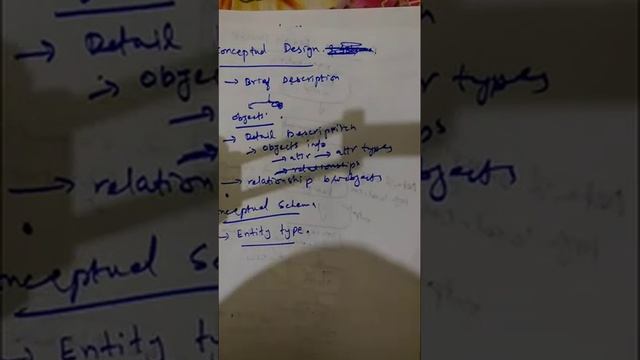 onceptual Design.
→ Brief Description
objects.
→ Detail Description
→ Objects info
→ attr → attr types
→ relationships
→ relationship b/w objects
onceptual Schem.
→ Entity type.